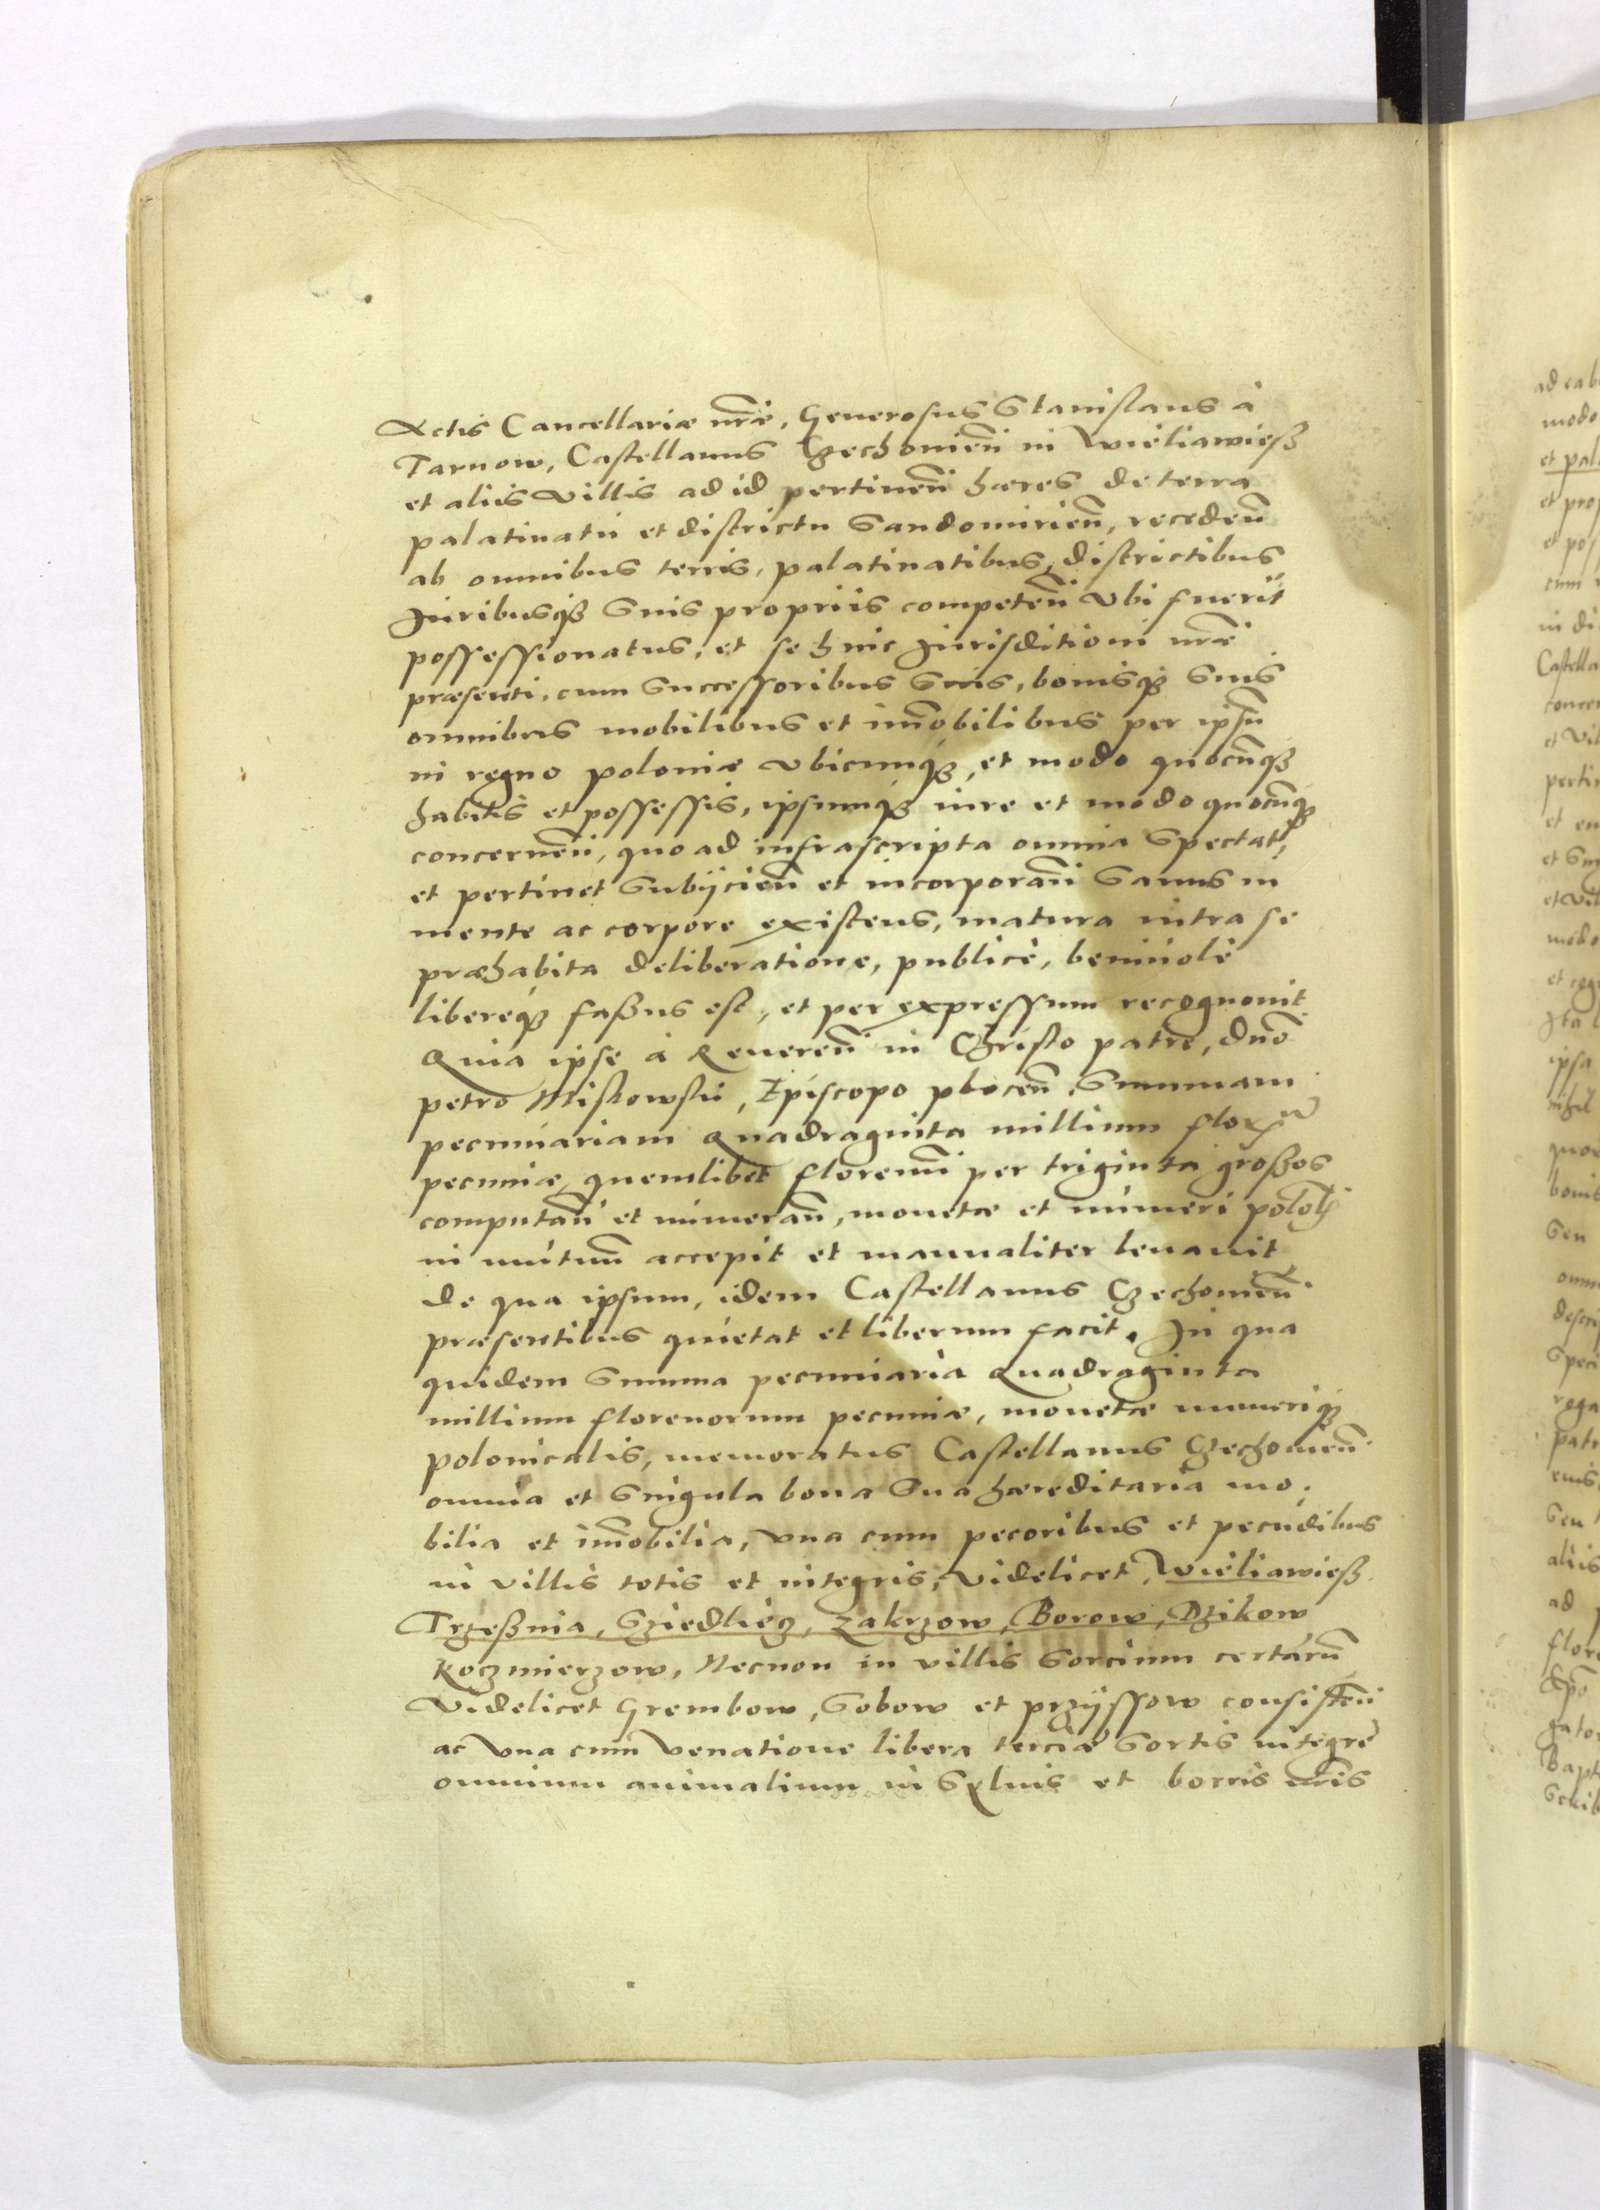 Actis Cancellariæ nr̃æ, Generosus Stanislaus à
Tarnow, Castellanus Czechovien̄ in Wieliawieß
et aliis Villis ad id pertinen̄ hæres de terra
palatinatu et districtu Sandomirien̄, receden̄
ab omnibus terris, palatinatibus, districtibus
Juribusq₃ suis propriis competen̄ Vbi fuerit
possessionatus, et se huic Jurisditioni nr̃æ
præsenti, cum Successoribus suis, bonisq₃ suis
omnibus mobilibus et im̄obilibus per ipsū
in regno poloniæ Vbicunq₃, et modo quocūq₃
habitis et possessis, ipsumq₃ iure et modo quocūq₃
concernen̄, quo ad infrascripta omnia Spectat,
et pertinet Subijcien̄ et incorporan̄ Sanus in
mente ac corpore existens, matura intra se
præhabita deliberatione, publicè, beniuolè
libereq₃ faßus est, et per expressum recognouit
Quia ipse à Reueren̄ in Christo patre, dn̄o
petro Miskowski, Episcopo plocen̄ Summam
pecuniariam Quadraginta millium flor
pecuniæ, quemlibet florenū per triginta großos
computan̄ et numeran̄, monetæ et numeri
in mutuū accepit et manualiter leuauit
de qua ipsum, idem Castellanus Czechovien̄
præsentibus quietat et liberum facit. In qua
quidem Summa pecuniaria Quadraginta
millium florenorum pecuniæ, monetæ numeriq₃
polonicalis, memoratus Castellanus Czechovien̄
omnia et Singula bona Sua hæreditaria mo-
bilia et im̄obilia, Vna cum pecoribus et pecudibus
in Villis totis et integris, Videlicet, Wieliawieß
Trzeßnia, Sziedliecz, Zakrzow, Borow, Dzikow
Koczmierzow, Necnon in villis Sortium certarū
Videlicet Grembow, Sobow et przijssow consisten̄
ac Vna cum Venatione libera terciæ Sortis integrè
omnium animalium in Syluis et borris